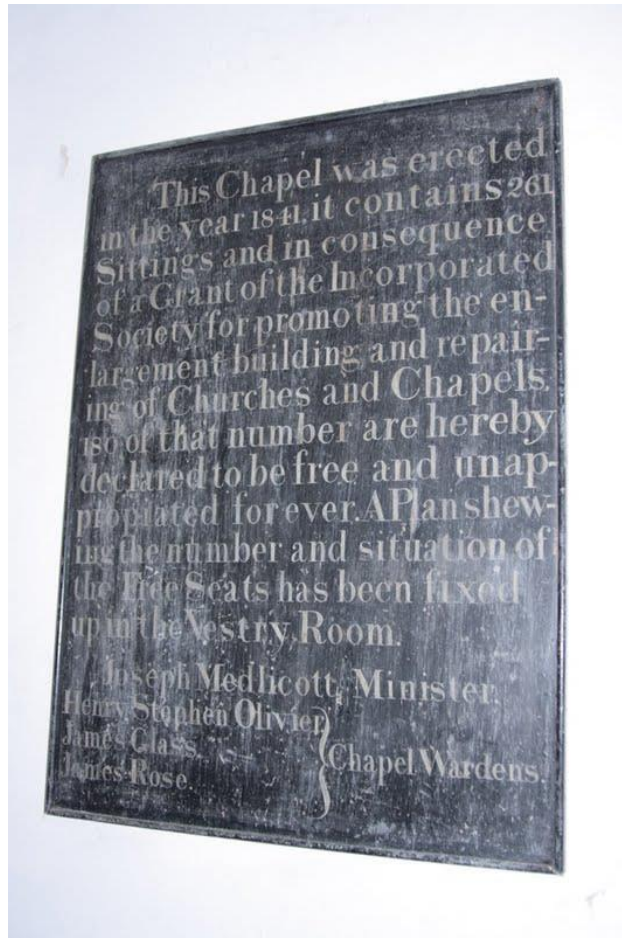 This Chapel was erected
in the year 1841. it contains 261
Sittings and in consequence
of a Grant of the Incorporated
Society for promoting the en-
largement building and repair-
ing of Churches and Chapels.
180 of that number are hereby
declared to be free and unap-
propiated for ever. A Plan shew-
ing the number and situation of
the Free Seats has been fixed
up in the Vestry, Room.
Joseph Medlicott, Minister.
Henry Stephen Olivier
James Glass
James Rose.
Chapel Wardens.